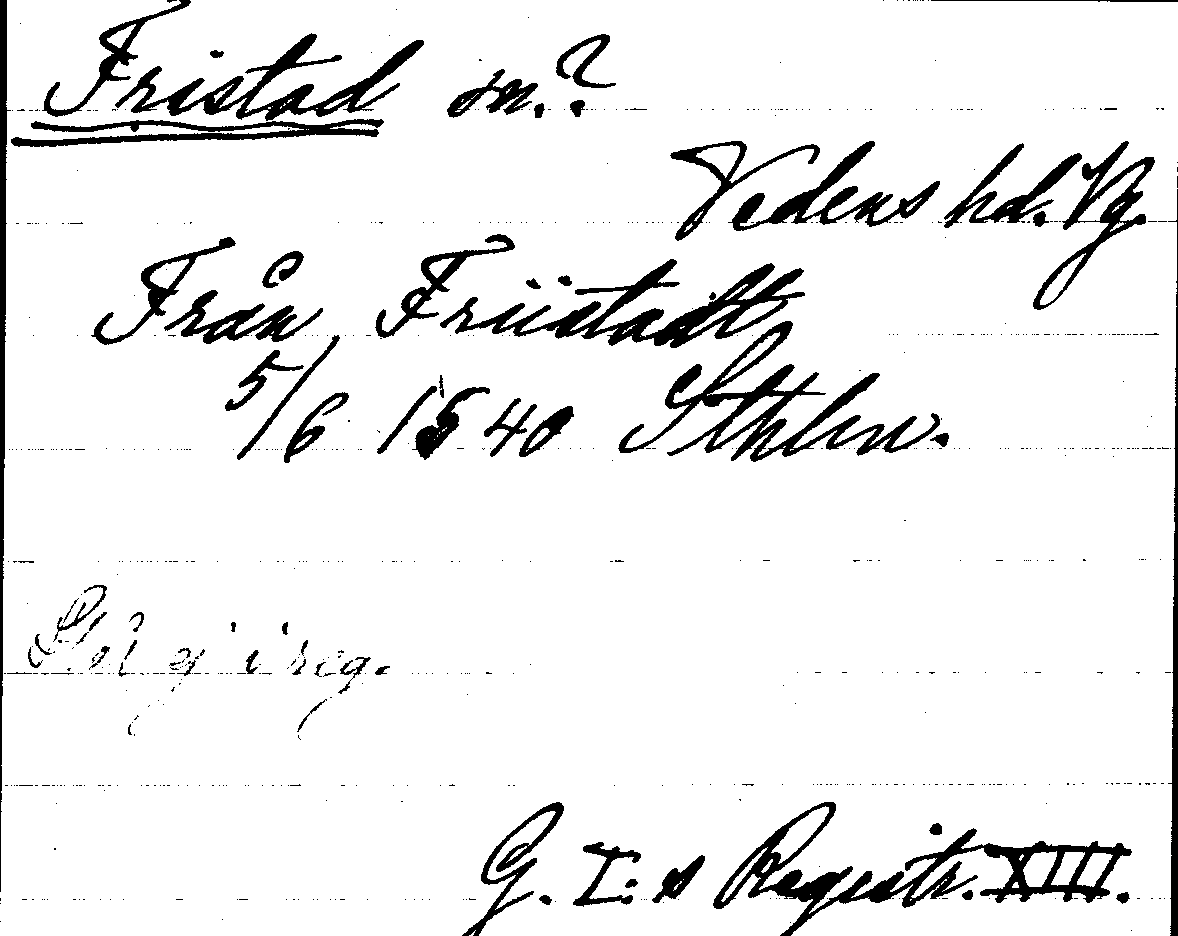 Fristad sn.?
Vedens hd. Vg.
Från Friistadt
5/6 1540 Sthlm.
Går ej i reg.
G. I:s Registr. XIII.